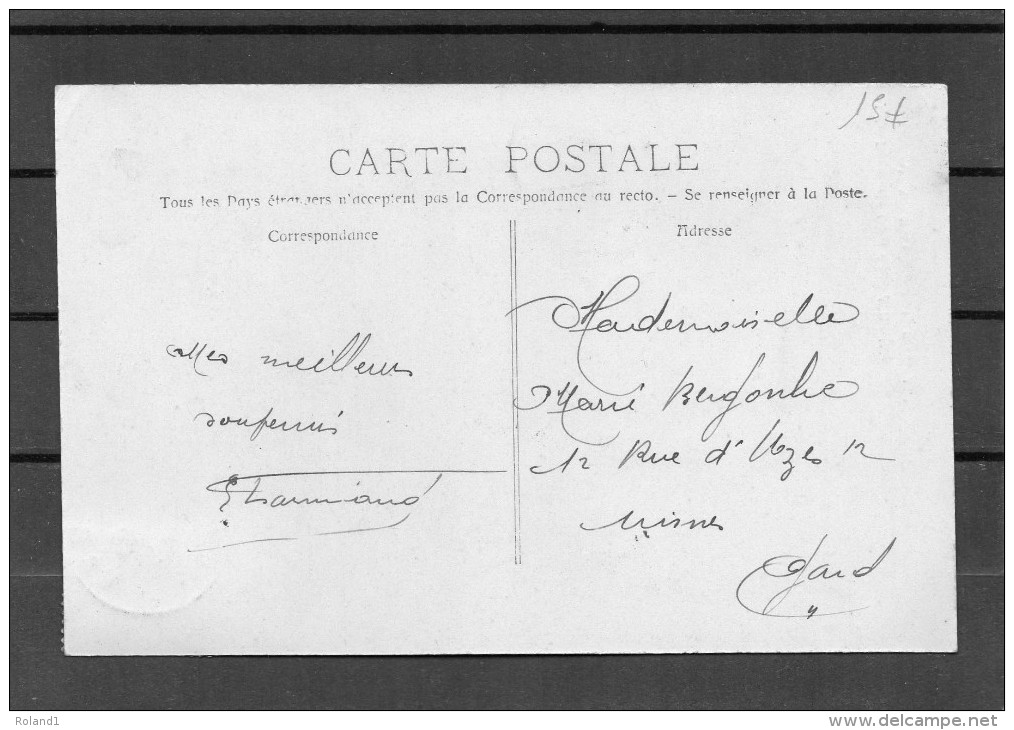 15€
CARTE POSTALE
Tous les Pays étrangers n'acceptent pas la Correspondance au recto. – Se renseigner à la Poste.
Correspondance
Mes meilleurs
souvenirs
Adresse
Mademoiselle
Marie Bergonhe
12 Rue d'Uzes 12
Nismes
Gard
Roland1
www.delcampe.net